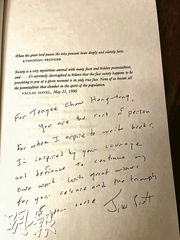 When the great lord passes the wise peasant bows deeply and silently farts.
ETHIOPIAN PROVERB
Society is a very mysterious animal with many faces and hidden potentialities,
and . . . it's extremely shortsighted to believe that the face society happens to be
presenting to you at a given moment is its only true face. None of us knows all
the potentialities that slumber in the spirit of the population.
VÁCLAV HAVEL, May 31, 1990
For Tonyee Chow Hang-tung,
You are the sort of person
for whom I aspire to write books,
I'm inspired by your courage
and defiance to continue my
own work with great
for your release and the triumph
your cause Jim Scott
明報